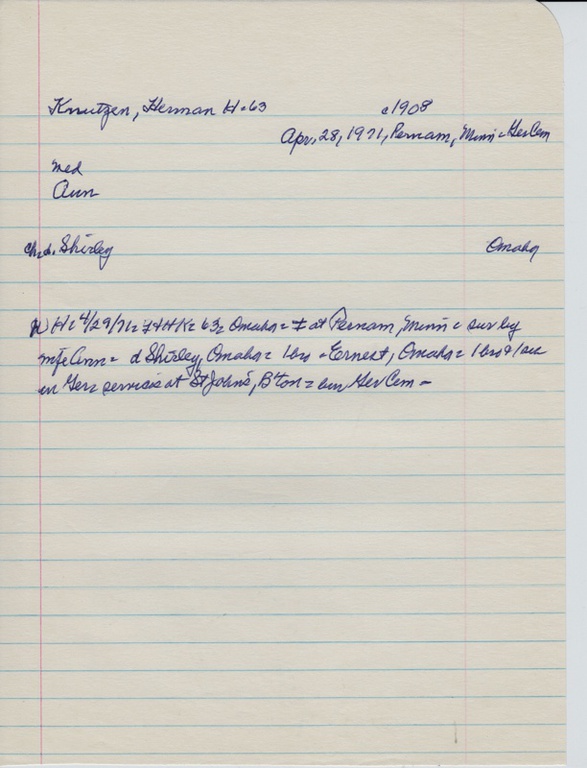 Knutzen, Herman H - 63 c1908
Apr, 28, 1971, Pernam, Minn = Ger Cem
med
Ann
chd. Shirley Omaha
W H = 4/29/71 = ‡ HHK = 63 = Omaha = ‡ at Pernam, Minn = sur by
wife Ann = d Shirley, Omaha = 1 bro - Ernest, Omaha = 1 bro & 1 sis
in Ger = services at St Johns, B'ton = bur Ger Cem -